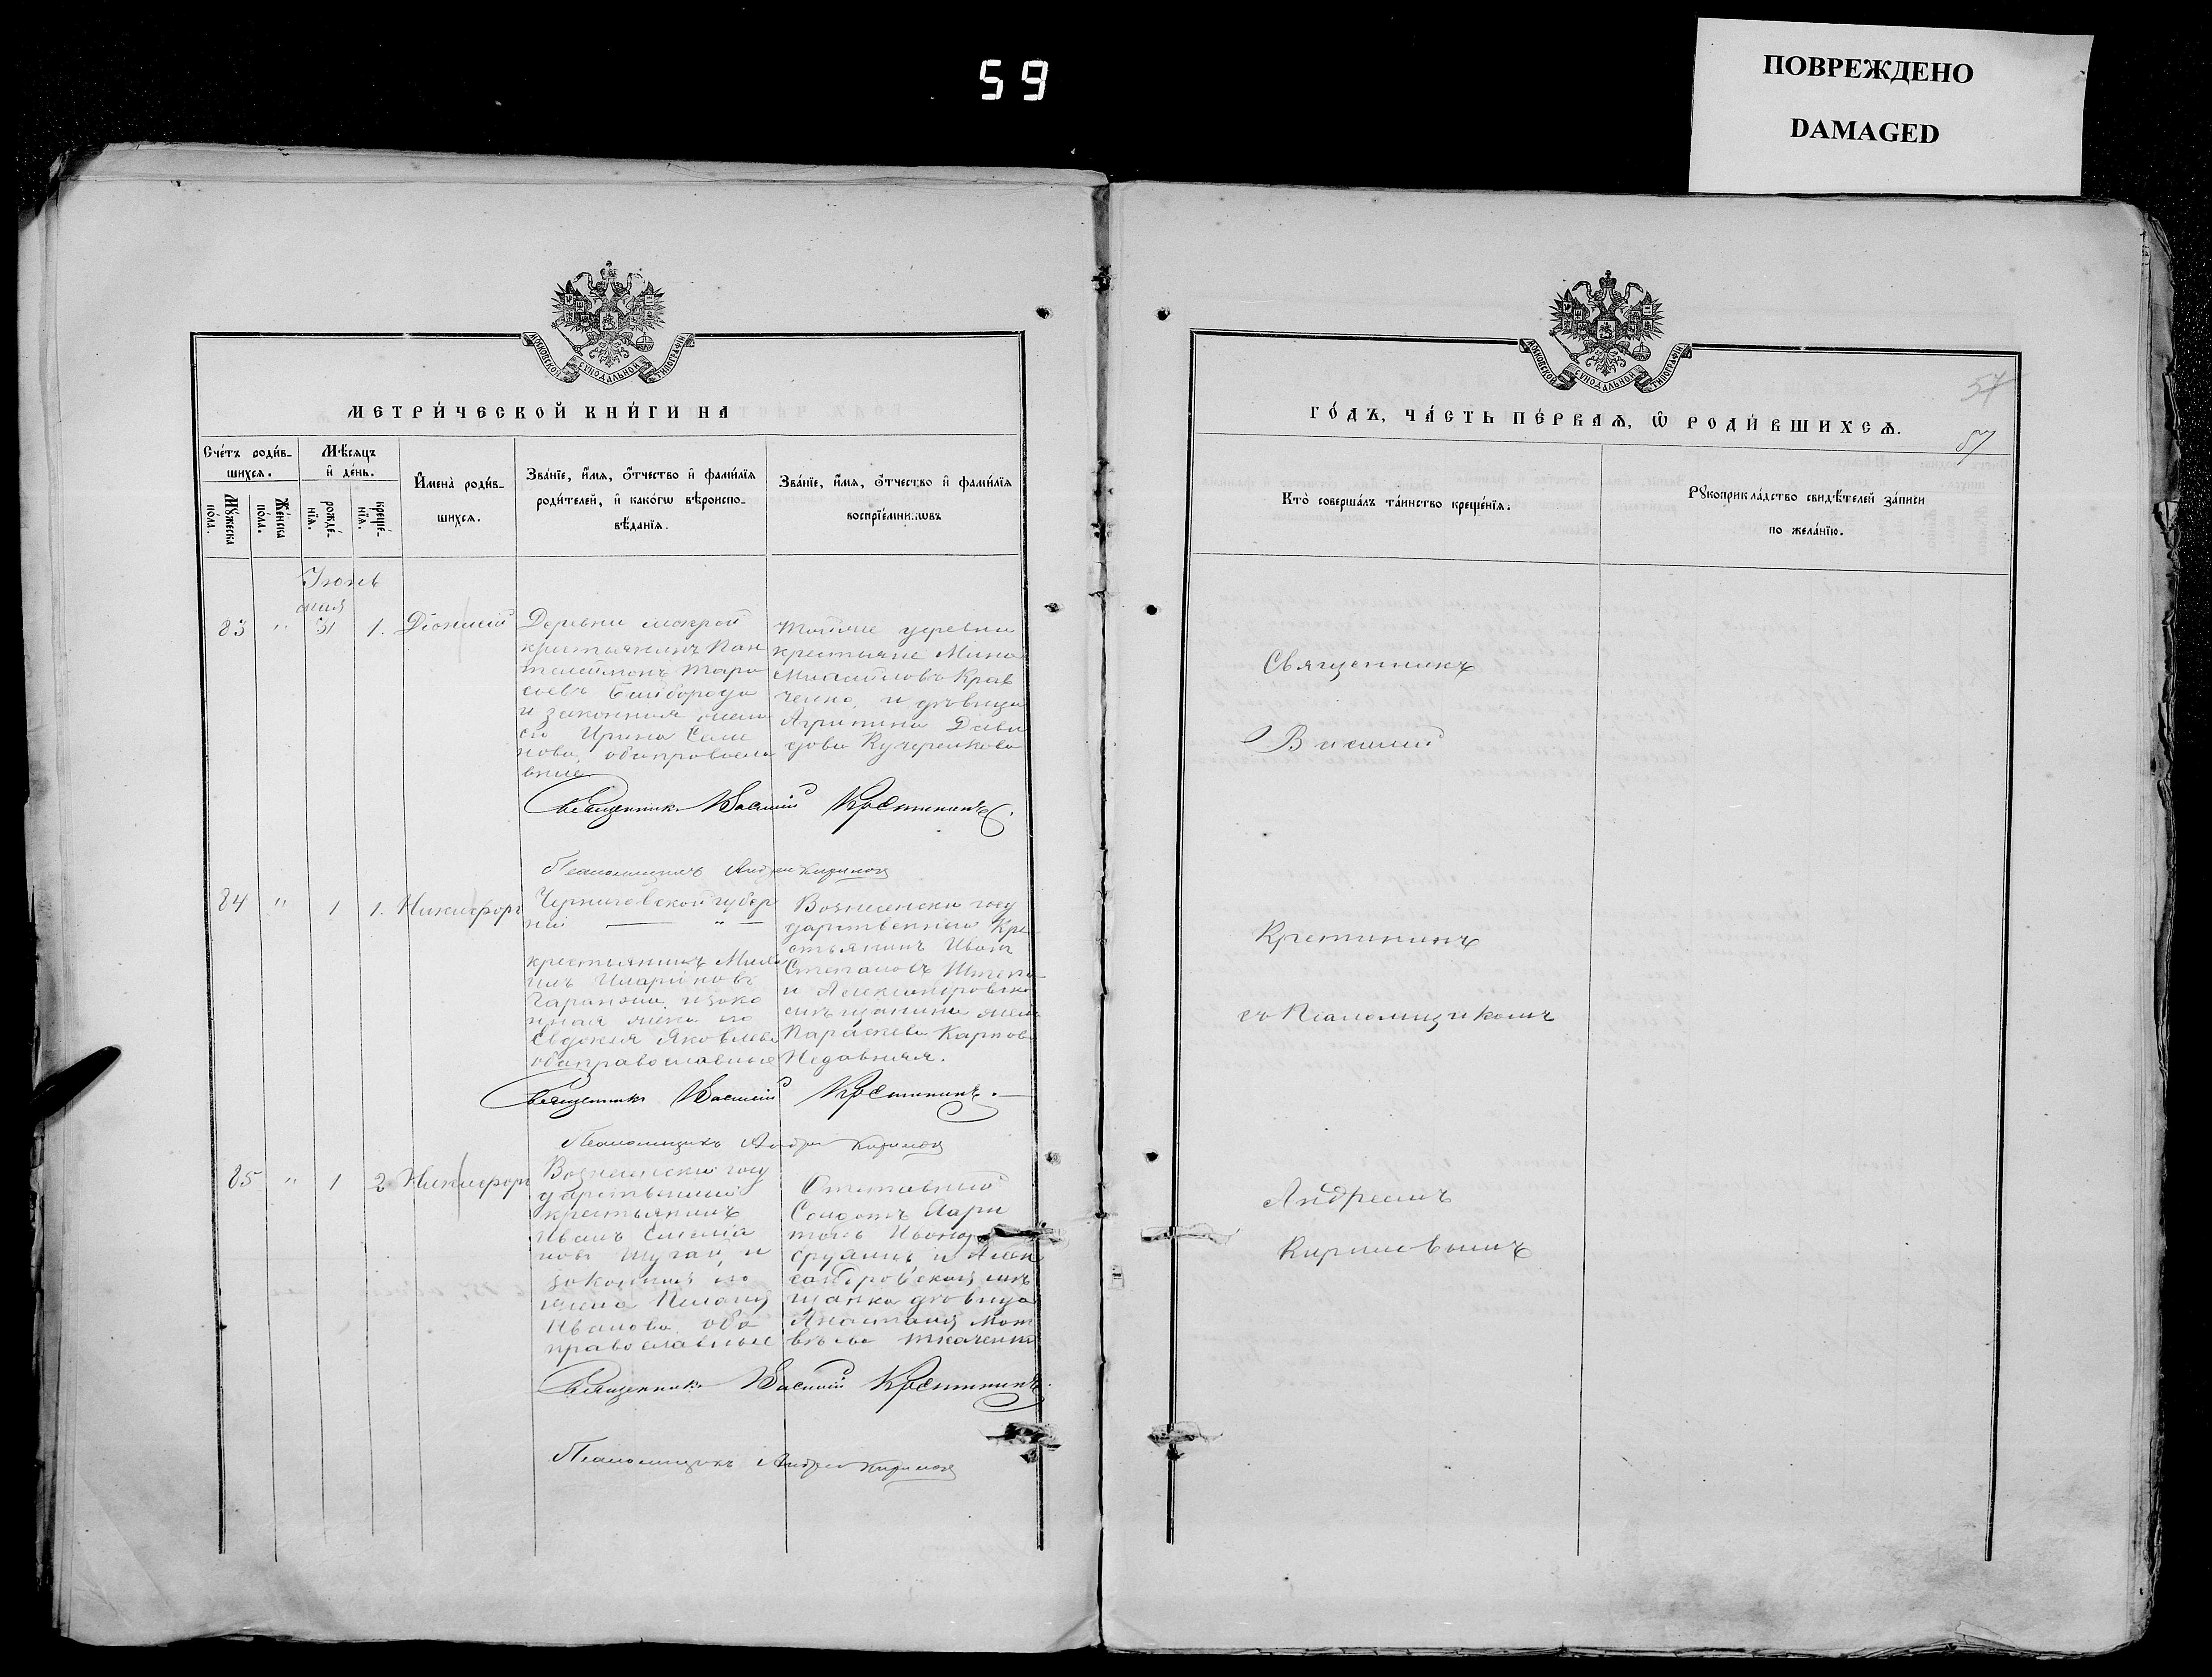 59
ПОВРЕЖДЕНО
DAMAGED
МОСКОВСКОЙ СѴНОДАЛЬНОЙ ТИПОГРАФІИ
МЕТРИ́ЧЕСКОЙ КНИ́ГИ НА
Сче́тъ роди́в-
шихсѧ.
Мѣ́сѧцъ
и҆ де́нь.
Мꙋ́жеска
по́ла.
Же́нска
по́ла.
рожде́-
нїѧ.
креще́-
нїѧ.
И҆мена̀ роди́в-
шихсѧ.
Зва́нїе, и҆́мѧ, ѻ҆́тчество и҆ фами́лїѧ
роди́телей, и҆ како́гѡ вѣроиспо-
вѣ́данїѧ.
Зва́нїе, и҆́мѧ, ѻ҆́тчество и҆ фами́лїѧ
воспрїе́мникѡвъ
Іюнь
мая
83 " 31 1. Діонисій
Деревни
крестьянинъ Пан
телеймонъ Тара
совъ
и законная жена
его Ирина Семе
нова, оба правосла
вные
Тойже деревни
крестьяне Мина
Михайловъ Крав
ченко, и дѣвица
Агрипина Дави
дова Кучеренкова
Священникъ Василій Крестининъ.
Псаломщикъ Андрей Кириловъ
84 " 1 1. Никифоръ
Черниговской губер
ніи — " —
крестьянинъ Миха
илъ Иларіоновъ
и зако
нная жена его
Евдокія Яковлева
оба православные
Вознесенски госу
дарственный кре
стьянинъ Иванъ
Степановъ
и Александровска
Параскева Карпова
Недавняя.
Священникъ Василій Крестининъ.
Псаломщикъ Андрей Кириловъ
85 " 1 2 Никифоръ
Вознесенски госу
дарственный
крестьянинъ
Иванъ
новъ Шугай, и
законная его
жена Пелагія
Иванова, оба
православные
Отставный
Солдатъ Хари
тонъ
и Алек
сандровская мѣ
щанка дѣвица
Анастасія Мат
вѣева Ткаченко
Священникъ Василій Крестининъ.
Псаломщикъ Андрей Кириловъ
МОСКОВСКОЙ СѴНОДАЛЬНОЙ ТИПОГРАФІИ
57
57
ГО́ДЪ, ЧА́СТЬ ПЕ́РВАѦ, Ѡ҆ РОДИ́ВШИХСѦ.
Кто̀ соверша́лъ та́инство креще́нїѧ.
Рꙋкоприкла́дство свидѣ́телей за́писи
по жела́нїю.
Священникъ
Василій
Крестининъ
съ Псаломщикомъ
Андреемъ
Кириловымъ